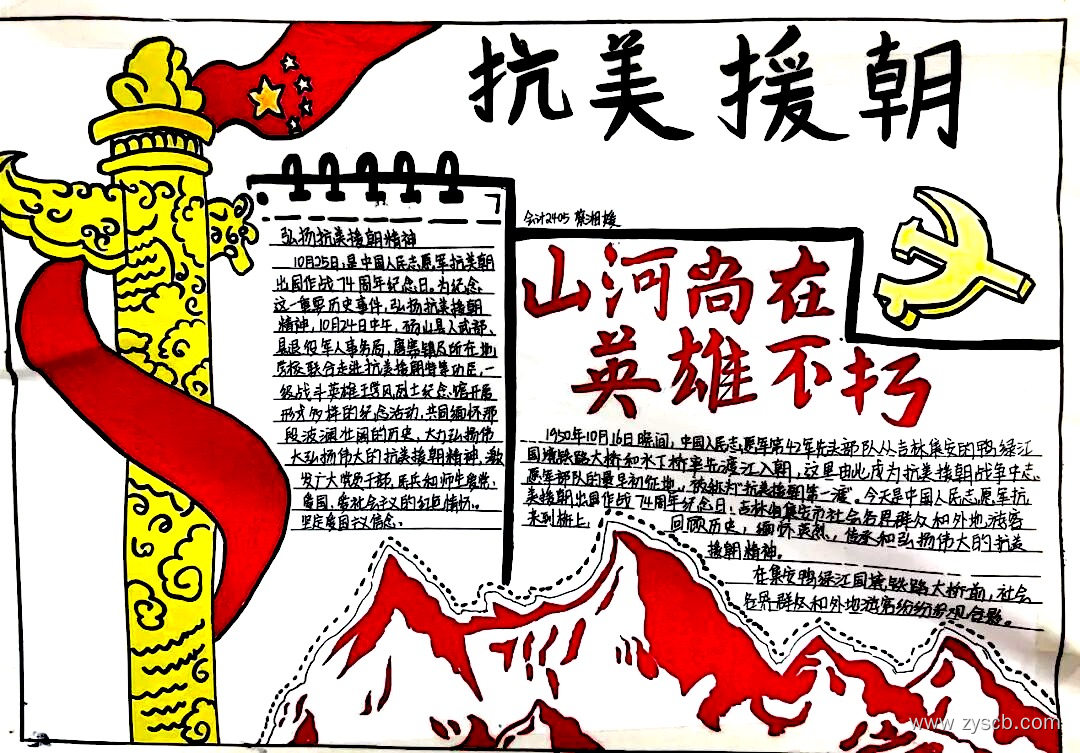 抗美援朝
会计2405 蔡湘媛
弘扬抗美援朝精神
10月25日,是中国人民志愿军抗美援朝
出国作战74周年纪念日。为纪念
这一重要历史事件,弘扬抗美援朝
精神,10月24日中午,砀山县人武部、
县退役军人事务局,唐寨镇及所在地
学校联合走进抗美援朝特等功臣,一
级战斗英雄王学风烈士纪念馆开展
形式多样的纪念活动,共同缅怀那
段波澜壮阔的历史,大力弘扬伟
大弘扬伟大的抗美援朝精神,激
发广大党员干部、民兵和师生爱党、
爱国、爱社会主义的红色情怀。
坚定爱国主义信念。
山河尚在
英雄不朽
1950年10月16日晚间,中国人民志愿军第42军先头部队从吉林集安的鸭绿江
国境铁路大桥和水丁桥率先渡江入朝,这里由此成为抗美援朝战争中志
愿军部队的最早初征地,被誉为"抗美援朝第一渡"。今天是中国人民志愿军抗
美援朝出国作战74周年纪念日,吉林省集安市社会各界群众和外地游客
来到桥上,
回顾历史,缅怀英烈,传承和弘扬伟大的抗美
援朝精神。
在集安鸭绿江国境铁路大桥前,社会
各界群众和外地游客纷纷参观合影。
www.zyscb.com